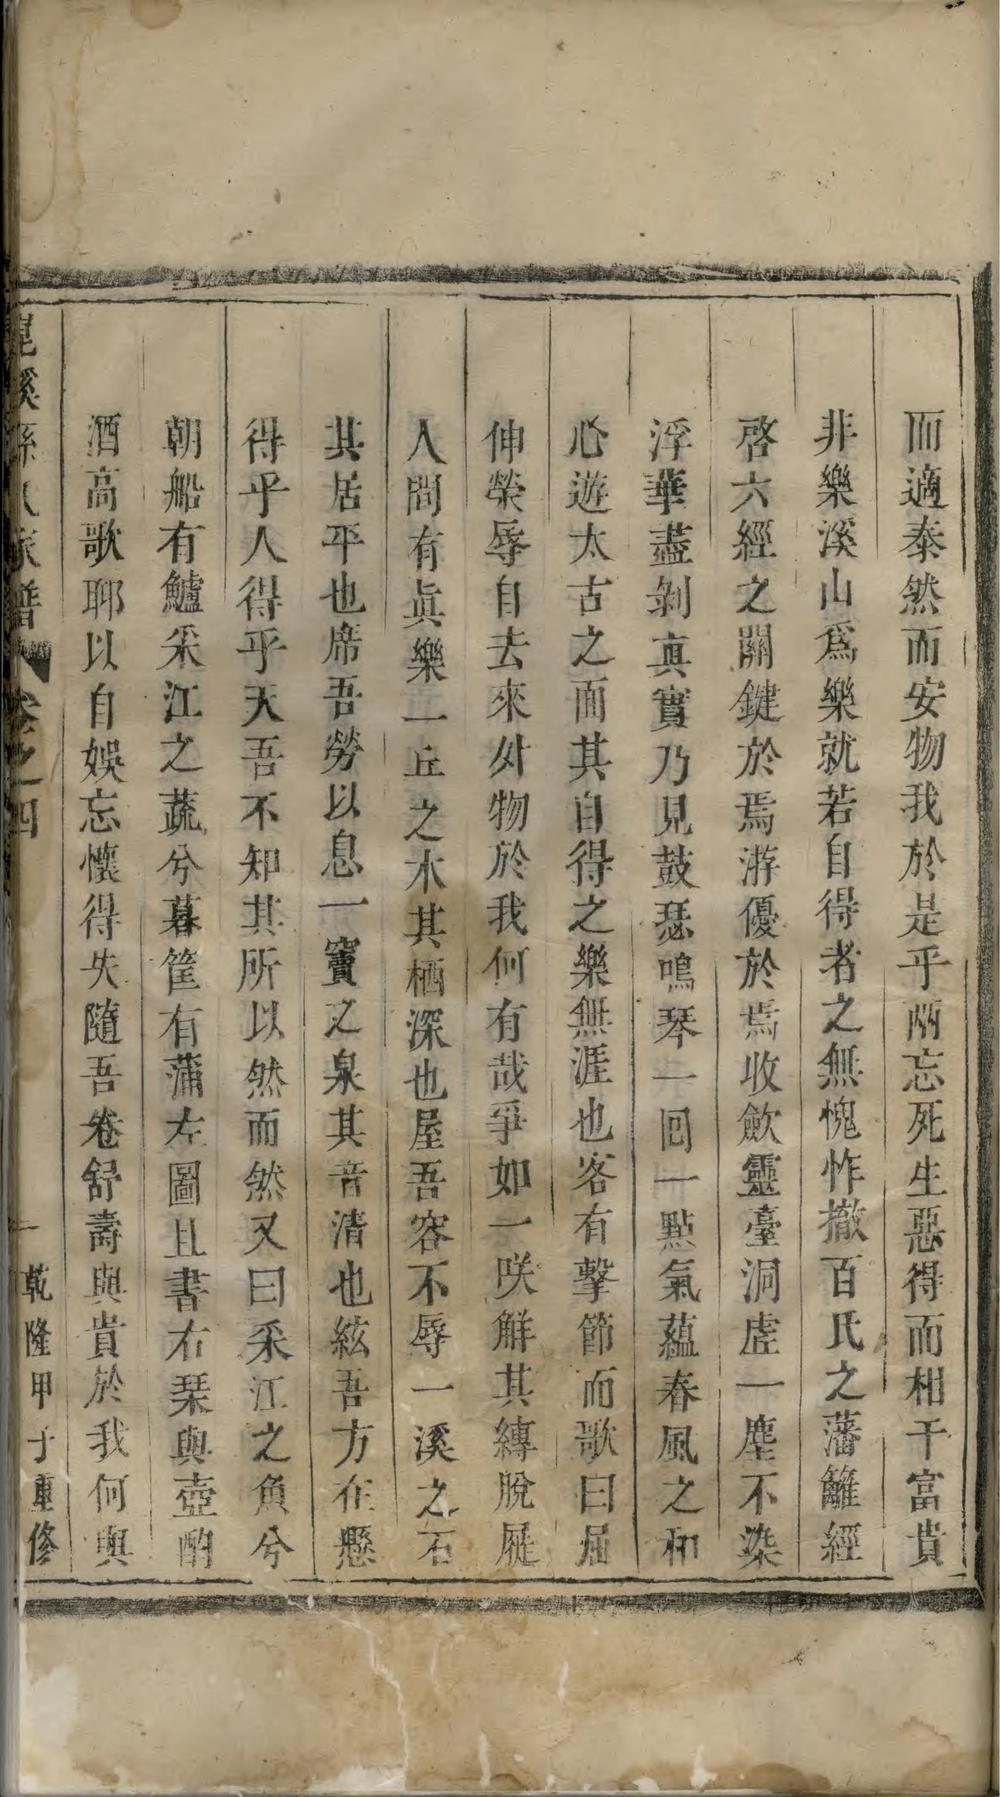 而適泰然而安物我於是乎兩忘死生惡得而相干富貴
非樂溪山爲樂就若自得者之無愧怍撤百氏之藩籬經
啓六經之關鍵於焉游優於焉收歛靈臺洞虛一塵不染
浮華盡剝真實乃見鼓瑟鳴琴一回一點氣蘊春風之和
心遊太古之面其自得之樂無涯也客有擊節而歌曰屈
伸榮辱自去來外物於我何有哉爭如一咲解其縳脫屣
人間有眞樂一丘之木其栖深也屋吾容不辱一溪之石
其居平也席吾勞以息一竇之泉其音清也絃吾方在懸
得乎人得乎天吾不知其所以然而然又曰采江之魚兮
朝船有鱸采江之蔬兮暮筐有蒲左圖且書右琹與壺酌
酒高歌聊以自娛忘懷得失隨吾卷舒壽與貴於我何與
溪孫氏家譜 卷之四 一 乾隆甲子重修